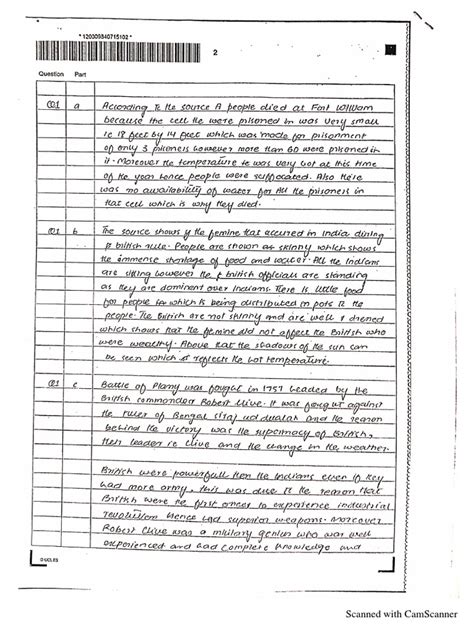 * 120009840715102 *
2
Question Part
Q1 a According to the source A people died at Fort William
because the cell the were prisoned in was very small
ie 18 feet by 14 feet which was made for prisonment
of only 3 prisoners however more than 60 were prisoned in
it. Moreover the temperature was very hot at this time
of the year hence people were suffocated. Also there
was no availability of water for all the prisoners in
that cell which is why they died.
Q1 b The source shows the femine that accured in India during
british rule. People are shown as skinny which shows
the immense shortage of food and water. All the Indians
are sitting however the british officials are standing
as they are dominant over Indians. There is little food
for people which is being distributed in pots to the
people. The British are not skinny and are well dressed
which shows that the femine did not affect the British who
were wealthy. Above that the shadows of the sun can
be seen which reflects the hot temperature.
Q1 c Battle of Plassy was fought in 1757 leaded by the
British commander Robert Clive. It was fought against
the ruler of Bengal Siraj ud daulah and the reason
behind the victory was the supremacy of British,
their leader ie Clive and the change in the weather.
British were powerfull then the Indians even if they
had more army, this was due to the reason that
British were the first ones to experience industrial
revolution hence had superior weapons. Moreover
Robert Clive was a military genius who was well
experienced and had complete knowledge and
© UCLES
Scanned with CamScanner